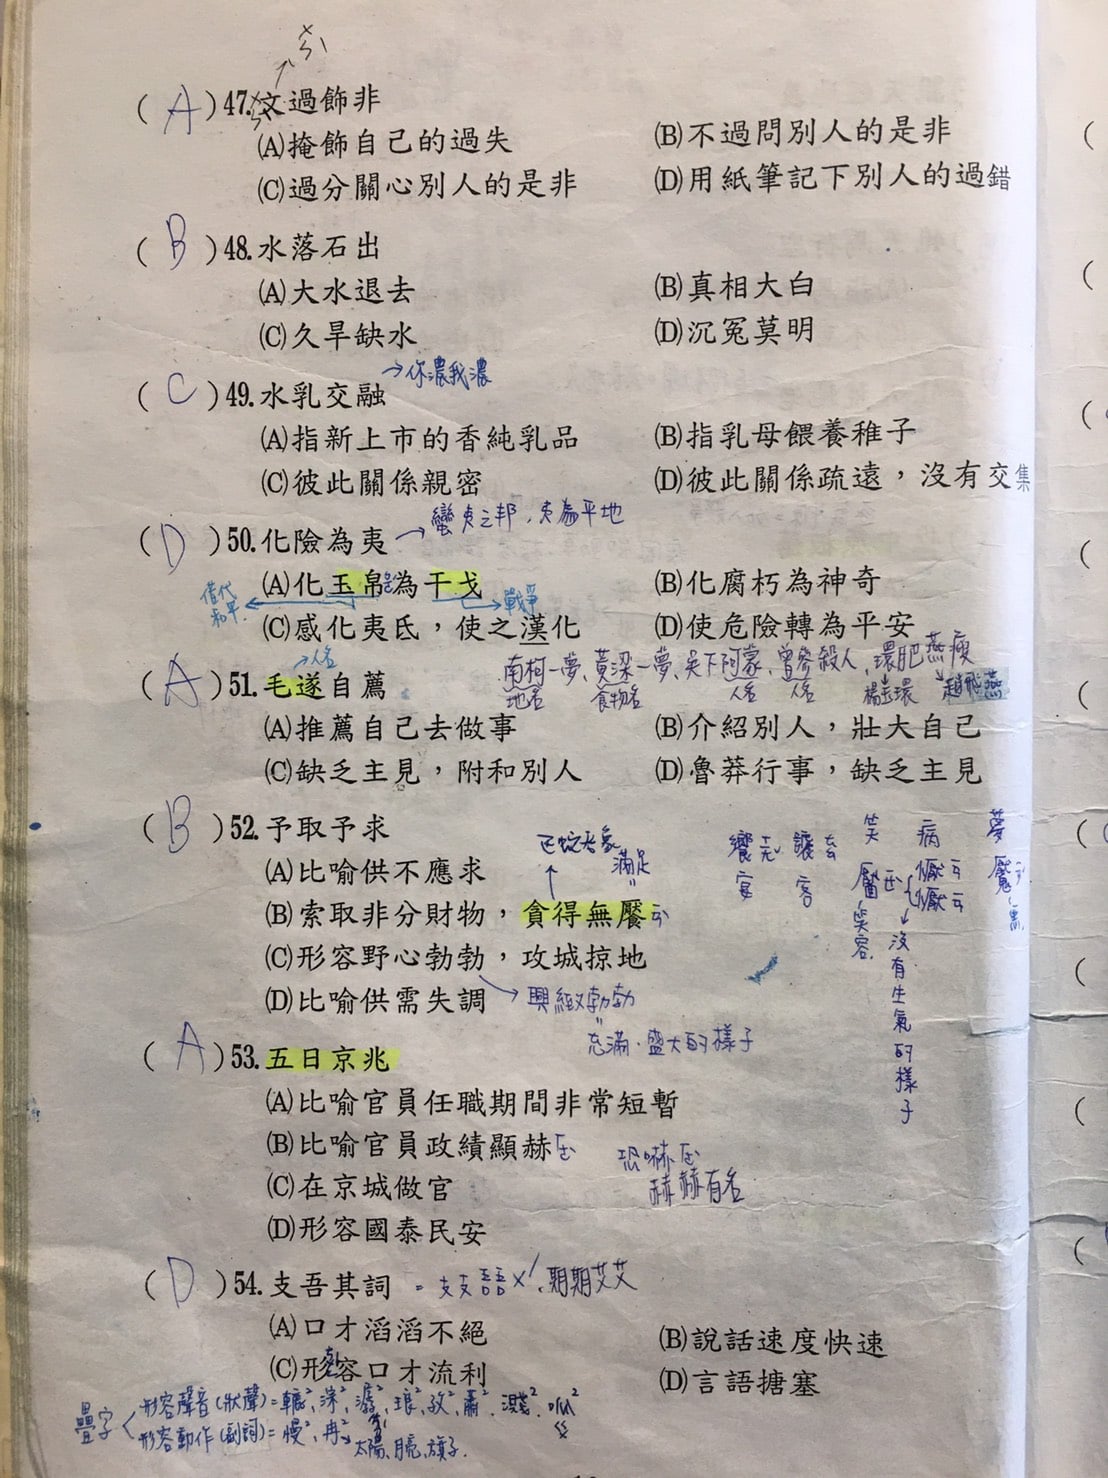 (A)47.文過飾非
(A)掩飾自己的過失 (B)不過問別人的是非
(C)過分關心別人的是非 (D)用紙筆記下別人的過錯
(B)48.水落石出
(A)大水退去 (B)真相大白
(C)久旱缺水 (D)沉冤莫明
→你濃我濃
(C)49.水乳交融
(A)指新上市的香純乳品 (B)指乳母餵養稚子
(C)彼此關係親密 (D)彼此關係疏遠，沒有交集
(D)50.化險為夷→蠻夷之邦、夷為平地
(A)化玉帛為干戈 (B)化腐朽為神奇
借代 和平 戰爭
(C)感化夷氐，使之漢化 (D)使危險轉為平安
→人名
南柯一夢、黃粱一夢、吳下阿蒙、曾參殺人、環肥燕瘦
地名 食物名 人名 人名 楊玉環 趙飛燕
(A)51.毛遂自薦
(A)推薦自己去做事 (B)介紹別人，壯大自己
(C)缺乏主見，附和別人 (D)魯莽行事，缺乏主見
(B)52.予取予求
(A)比喻供不應求
滿足
(B)索取非分財物，貪得無饜ㄧㄢ
(C)形容野心勃勃，攻城掠地
(D)比喻供需失調
→興緻勃勃
充滿、盛大的樣子
笑靨
笑容
病懨懨
沒有生氣的樣子
夢魘
(A)53.五日京兆
(A)比喻官員任職期間非常短暫
(B)比喻官員政績顯赫ㄏㄜ
恐嚇ㄏㄜ
赫赫有名
(C)在京城做官
(D)形容國泰民安
(D)54.支吾其詞=支支吾吾、期期艾艾
(A)口才滔滔不絕 (B)說話速度快速
(C)形容口才流利 (D)言語搪塞
疊字
形容聲音(狀聲)=
形容動作(副詞)=慢²、冉²
太陽、月亮、旗子